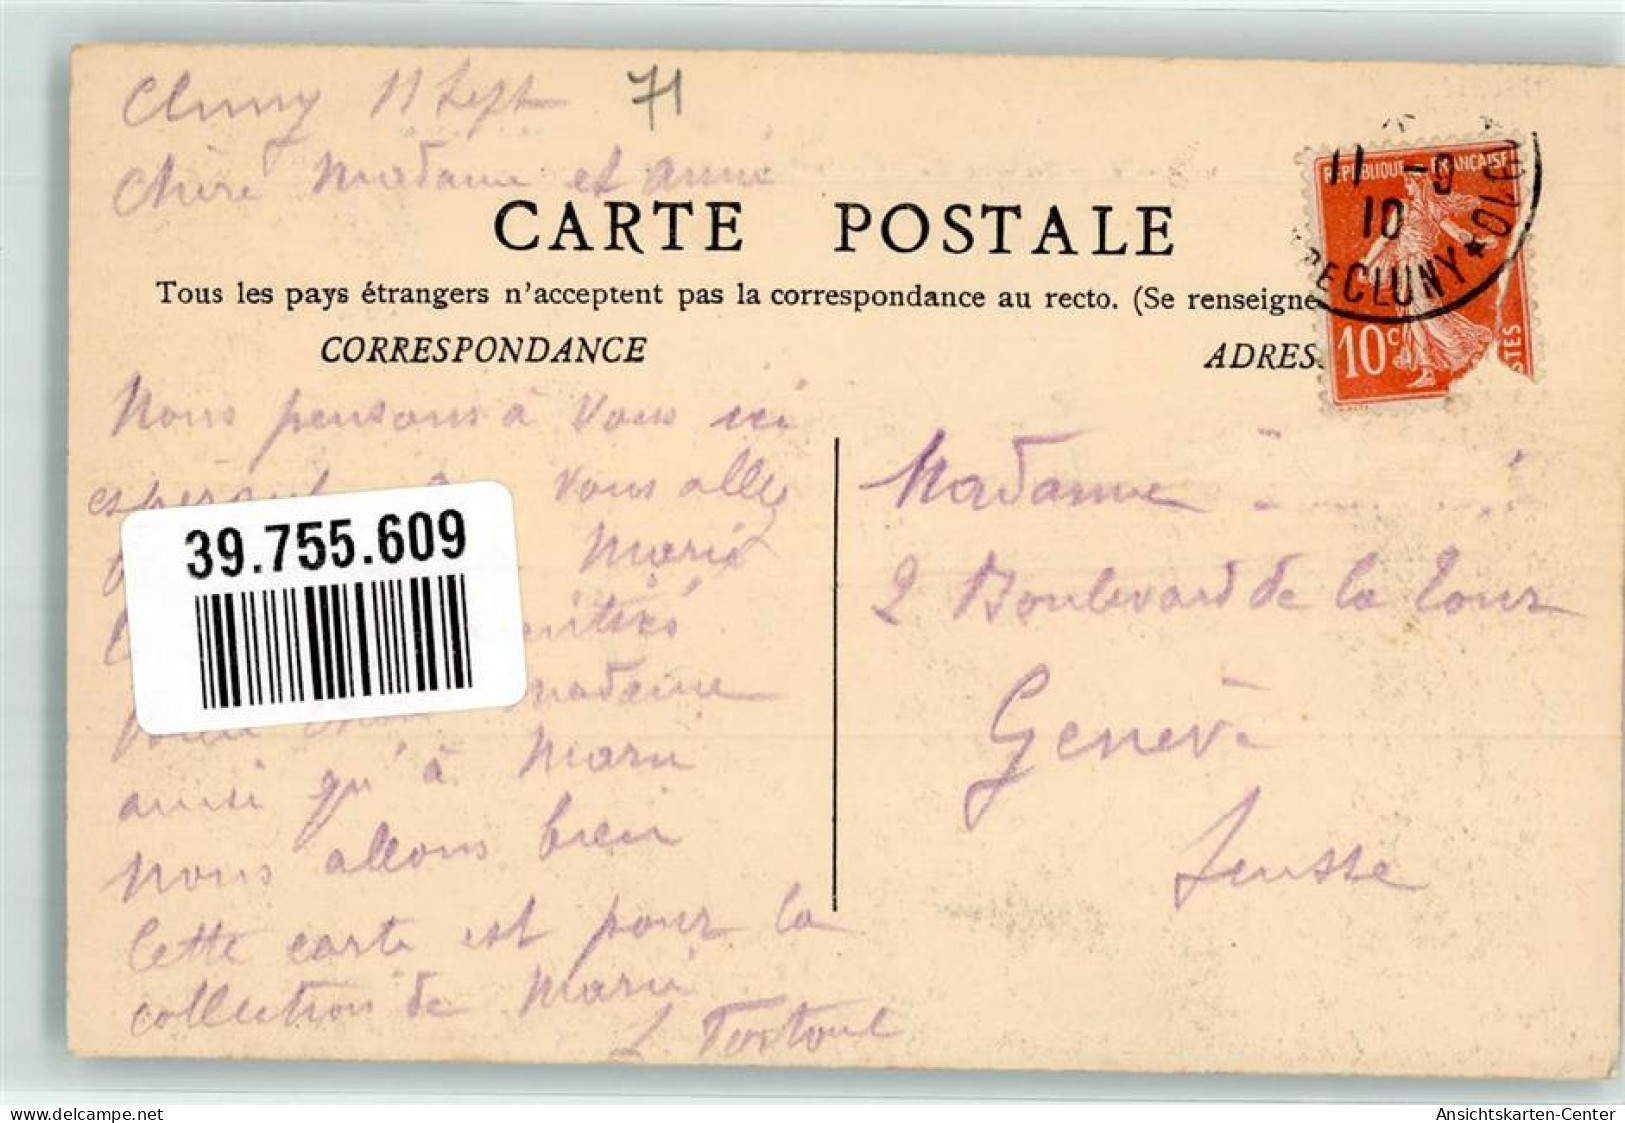 Cluny 11 Sept 71
Chère Madame et amie
CARTE POSTALE
Tous les pays étrangers n'acceptent pas la correspondance au recto. (Se renseigne
CORRESPONDANCE
ADRES
REPUBLIQUE FRANÇAISE
10c
STES
11 -9
10
DE CLUNY * 
Nous pensons à Vous ici
espérant Vous allez
39.755.609
Marie
madame
ainsi qu'à Marie
Nous allons bien
Cette carte est pour la
collection de Marie
L Tortoul
Madame
2 Boulevard de la Tour
Genève
Suisse
delcampe.net
Ansichtskarten-Center